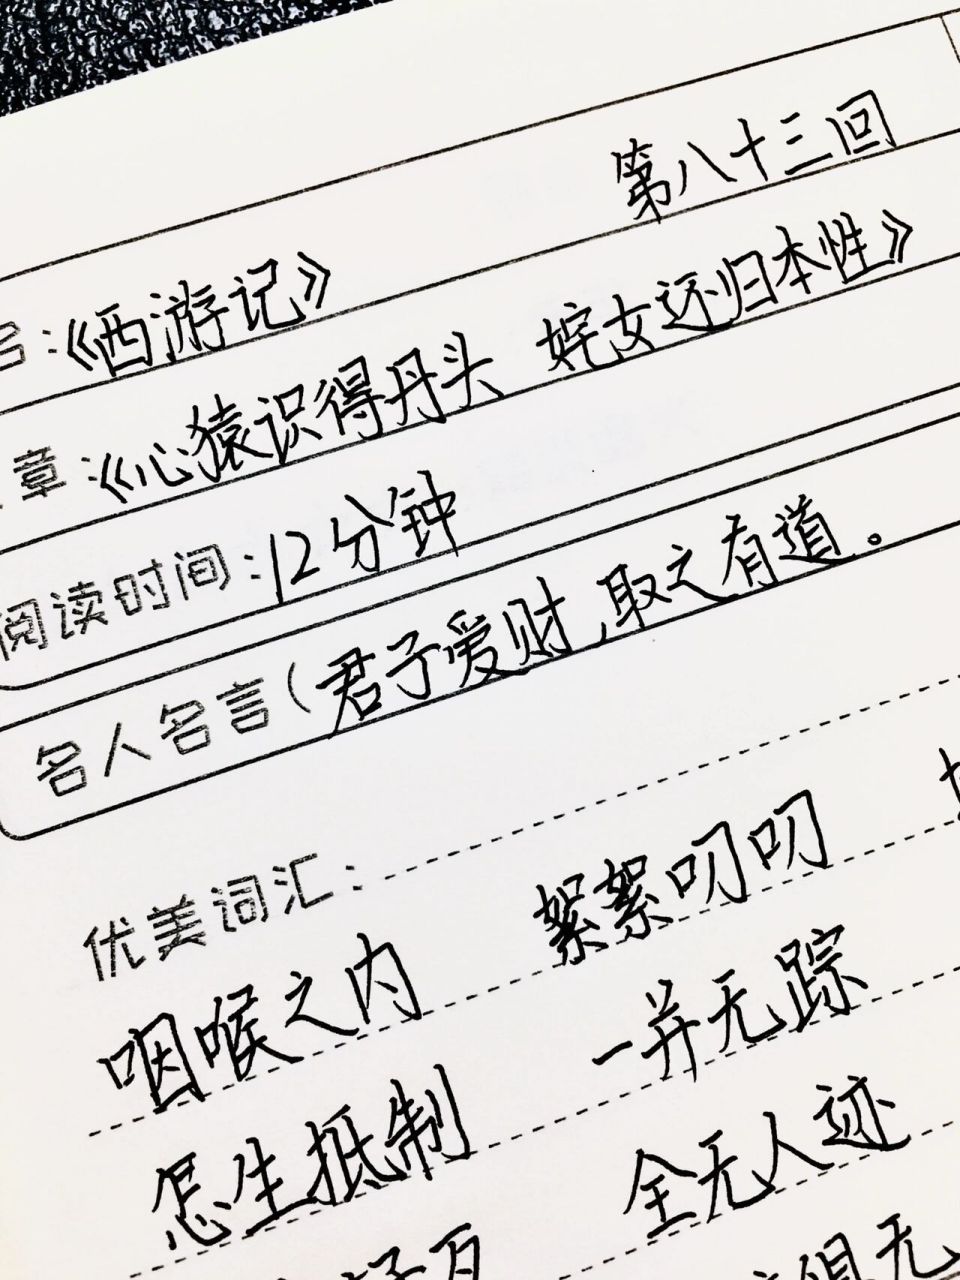 第八十三回
名:《西游记》
章:《心猿识得丹头 姹女还归本性》
阅读时间:12分钟
名人名言(君子爱财,取之有道。
优美词汇:
咽喉之内 絮絮叨叨
怎生抵制 一并无踪
全无人迹
俱无